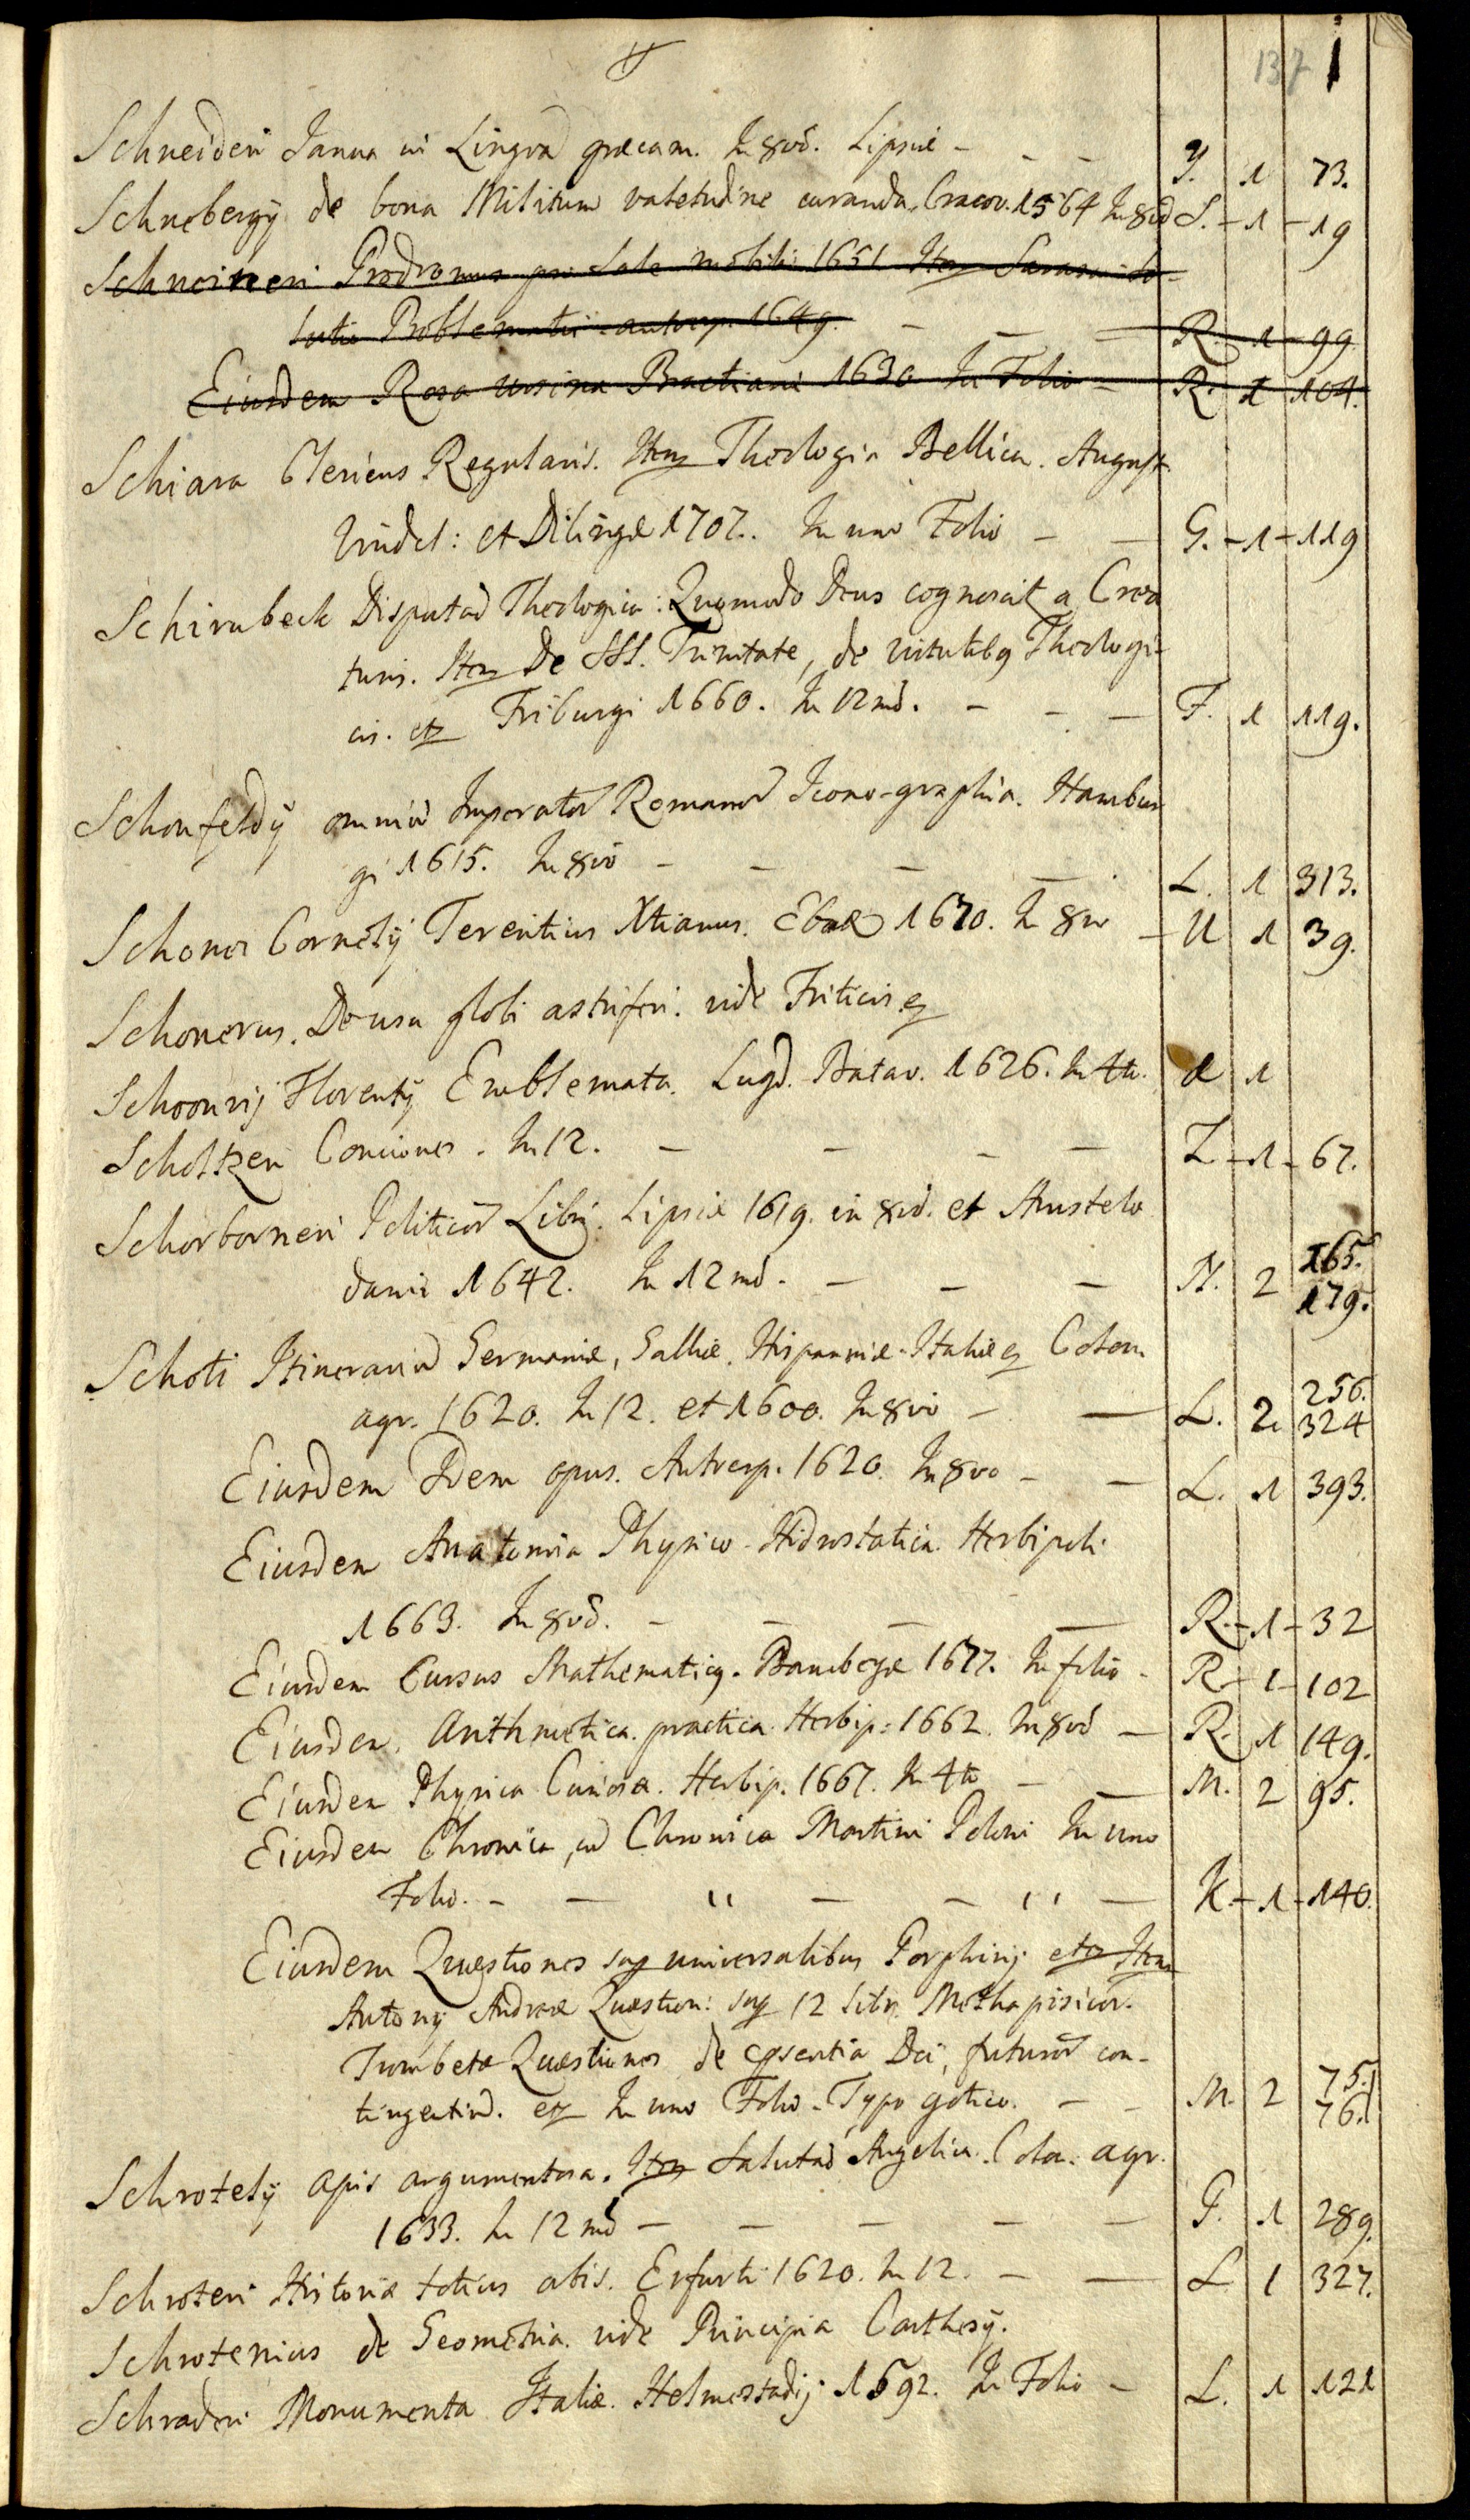 137 1
Schneideri Janua in Lingvã græcam. In 8võ. Lipsiæ - - - Y. 1 73.
Schnebergÿ de bona Militum valetudine curanda. Cracov. 1564 In 8vo S. - 1 - 19
Schneineri Prodromus pro Sole mobili 1651 Item
lutio Problematis antverp. 1649. - - - R. 1 99
Eiusdem Rosa ursina Bractiani 1630 In Folio - R. 1 104.
Schiara Clericus Regularis. Item Theologia Bellica. August.
Vindel: et Dilingæ 1707. In uno Folio - - G. - 1 - 119
Schirnbeck Disputaõ Theologica: Quomodo Deus cognoscit a Crea
turis. Item De SSS. Trinitate, de virtutibq Theologi-
cis. etz Friburgi 1660. In 12mõ. - - - F. 1 119.
Schonfeldÿ omniũ Imperatoũ Romanoũ Icono-graphia. Hambur
gi 1615. In 8vo - - - - L. 1 313.
Schonei Cornelÿ Terentius Xtianus. 1670. In 8vo - U 1 39.
Schonerus. De usu globi astriferi. vide Friticus.
Schoonvij Florentÿ Emblemata. Lugd. Batav. 1626. In 4to. d 1
Scholtzen Conciones. In 12. - - - - Z - 1 - 67.
Schorborneri Politicoũ Libri. Lipsiæ 1619. in 8võ. et Amstelo
dami 1642. In 12mõ. - - - N. 2 165.
179.
Schoti Itinerariũ Germaniæ, Galliæ, Hispanniæ. Italiæ Colon.
agr. 1620. In 12. et 1600. In 8vo - - L. 2. 256.
324
Eiusdem Idem opus. Antverp. 1620. In 8vo - - L. 1 393.
Eiusdem Anatomia Physico-Hidrostatica. Herbipoli.
1663. In 8võ. - - - - R. - 1 - 32
Eiusdem Cursus Mathematicq. Bambergæ 1677. In folio - R. - 1 - 102
Eiusdem. Arithmetica practica Herbip: 1662. In 8võ - R. 1 149.
Eiusdem Physica Curiosa. Herbip. 1667. In 4to - - M. 2 95.
Eiusdem Chronica, cũ Chronica Martini Poloni In uno
Folio. - - " - - " - K. - 1 - 140.
Eiusdem Quæstiones sup universalibus Porphirij etz Item
Antonÿ Andreæ Quæstion: sup 12 libr. Methapisicor.
Trombetæ Quæstiones de essentia Dei, futuroũ con-
tingentiũ. etz In uno Folio. Typo gotico. - - M. 2 75.
76.
Schrotelÿ Apis argumentosa. Item Salutaõ Angelica. Colon: agr.
1633. In 12mõ - - - - - P. 1 289.
Schroteri Historiæ totius obis. Erfurti 1620. In 12. - - L. 1 327.
Schrotenius de Geometria. vide Principia Carthesÿ.
Schraderi Monumenta Italiæ. Helmestadij 1592. In Folio - L. 1 121